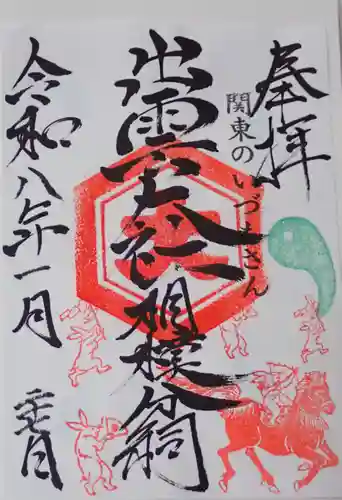 奉拝
関東のいづもさん
出雲大社相模分祠
令和八年一月
二十七日